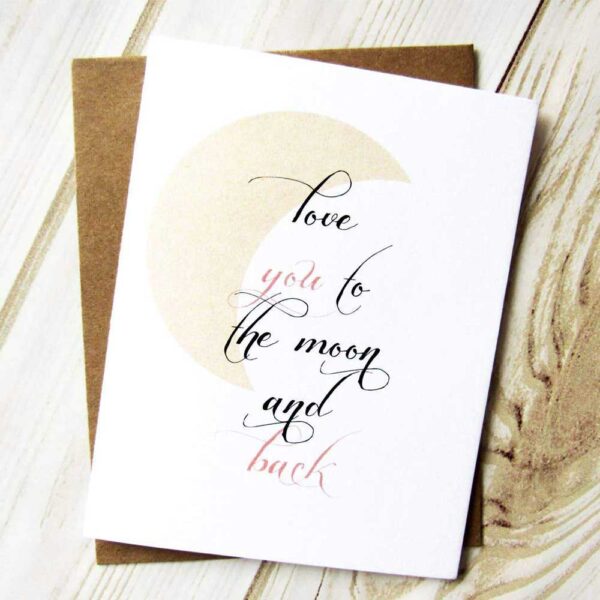 love
you to
the moon
and
back